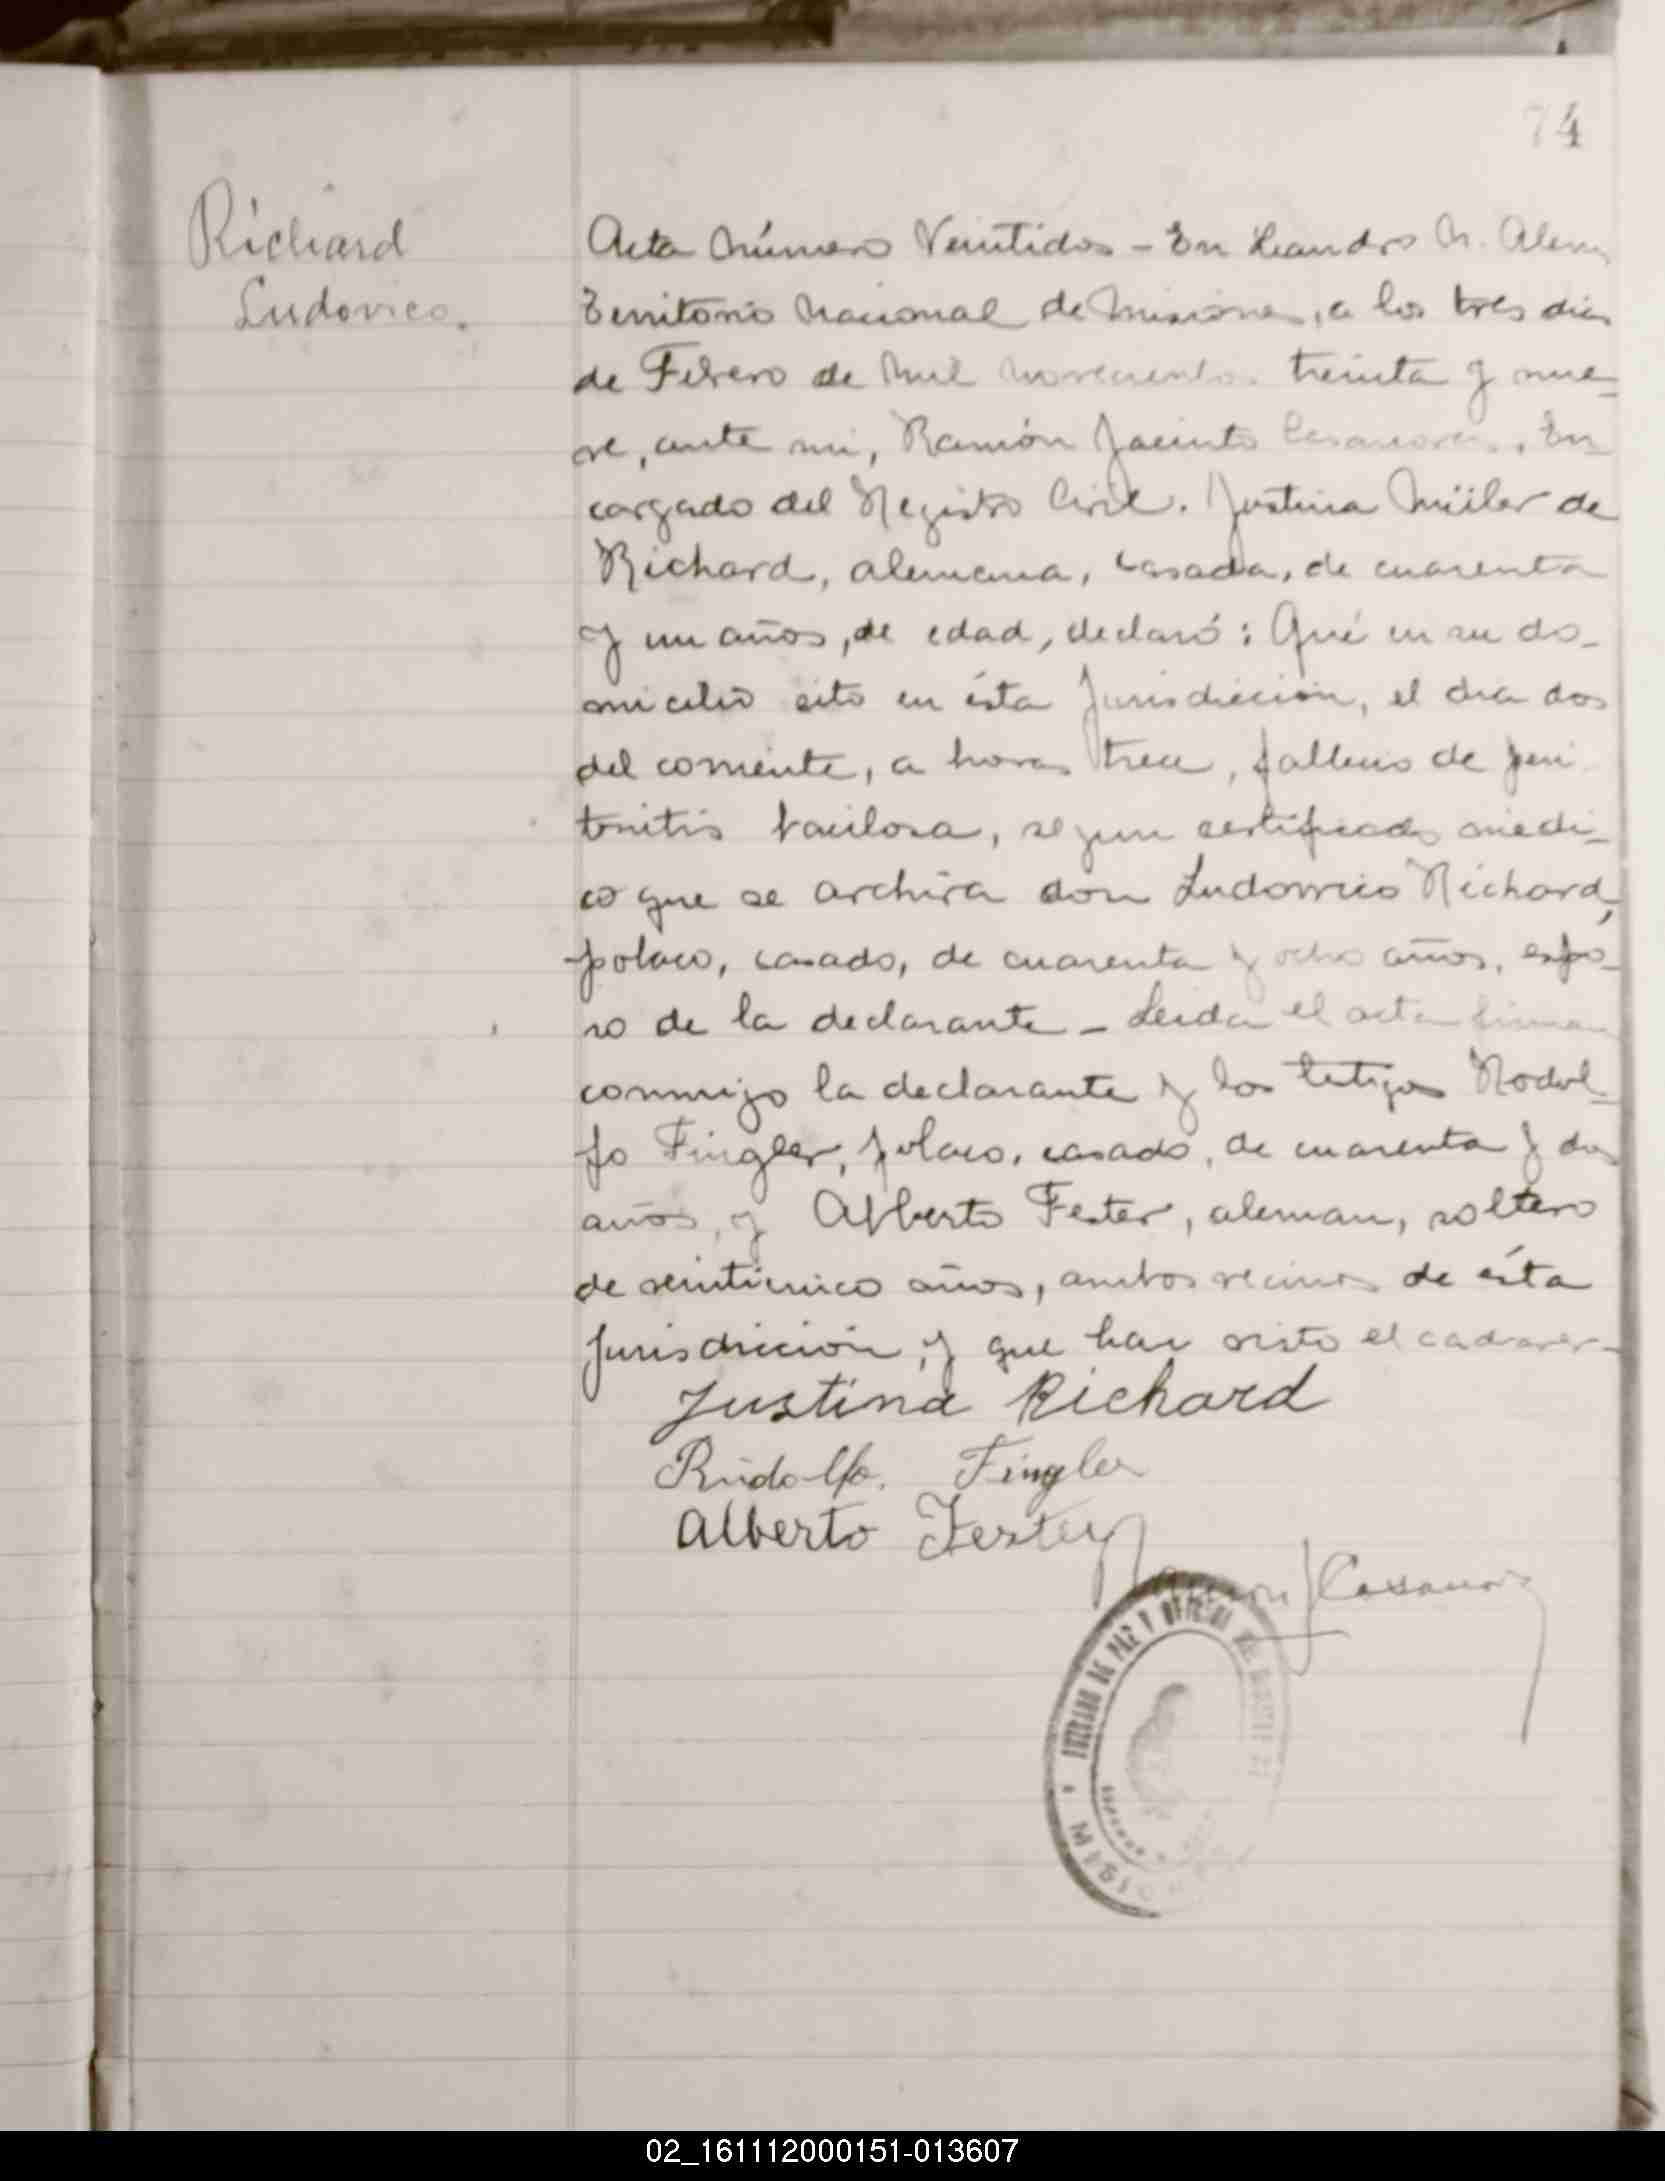 74
Richard
Ludovico.
Acta Número Veintidos - En Leandro N. Alem
Territorio Nacional de Misiones, a los tres dias
de Febrero de mil novecientos treinta y nue-
ve, ante mi, Ramón Jacinto Casanova, En-
cargado del Registro Civil. Justina Müler de
Richard, alemana, casada, de cuarenta
y un años, de edad, declaró: Qué en su do-
micilio sito en ésta Jurisdicción, el dia dos
del corriente, a horas trece, fallecio de peri
tonitis bacilosa, segun certificado medi-
co que se archiva don Ludovico Richard,
polaco, casado, de cuarenta y ocho años, espo-
so de la declarante - Leida el acta firman
conmigo la declarante y los tetigos Rodol-
fo Fingler, polaco, casado, de cuarenta y dos
años, y Alberto Fester, aleman, soltero
de veinticinco años, ambos vecinos de ésta
Jurisdiccion, y que han visto el cadaver-
Justina Richard
Rudolfo. Fingler
Alberto Fester
Ramon J Casanova
JUZGADO DE PAZ Y OFICINA
02_161112000151-013607